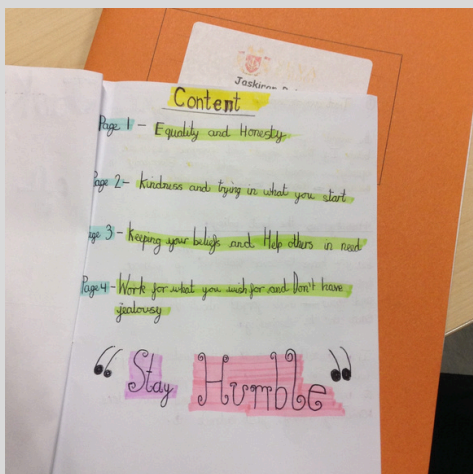 Jaskiran
Content
Page 1 - Equality and Honesty
Page 2- Kindness and trying in what you start
Page 3- Keeping your beliefs and Help others in need
Page 4 - Work for what you wish for and Don't have
jealousy
“ Stay Humble ”